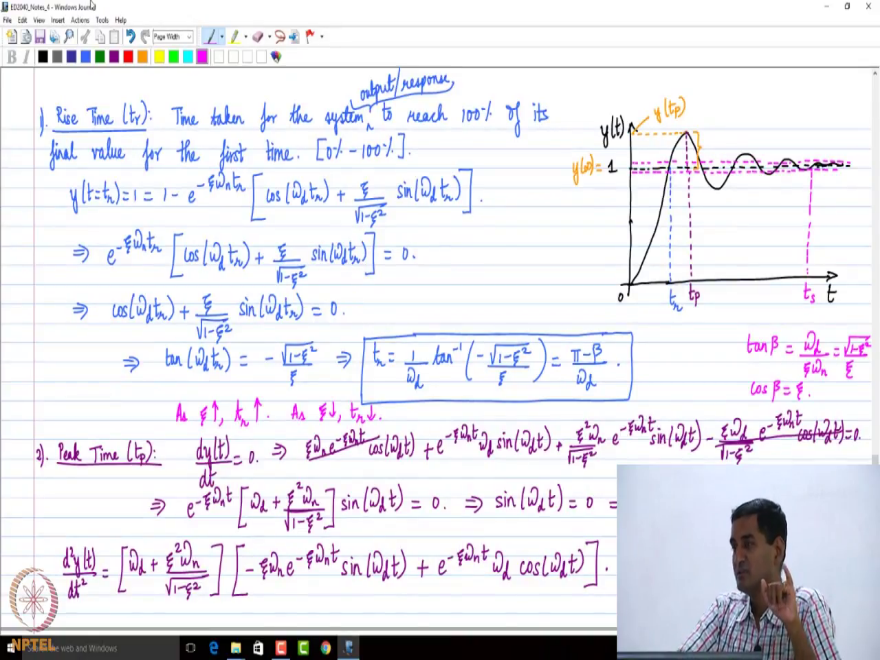 ED2040_Notes_4 - Windows Journal
File Edit View Insert Actions Tools Help
Page Width
B I
output/response
1). Rise Time (tr): Time taken for the system ^ to reach 100% of its
final value for the first time. [0% - 100%].
y(t=tr) = 1 = 1 - e^{-ξωntr} [cos(ωdtr) + ξ/√(1-ξ²) sin(ωdtr)].
⇒ e^{-ξωntr} [cos(ωdtr) + ξ/√(1-ξ²) sin(ωdtr)] = 0.
⇒ cos(ωdtr) + ξ/√(1-ξ²) sin(ωdtr) = 0.
⇒ tan(ωdtr) = -√(1-ξ²)/ξ ⇒ tr = 1/ωd tan⁻¹(-√(1-ξ²)/ξ) = (π-β)/ωd.
As ξ↑, tr↑. As ξ↓, tr↓.
y(t)
y(tp)
y(∞)= 1
0 tr tp ts t
tanβ = ωd/ξωn = √(1-ξ²)/ξ
cosβ = ξ.
2). Peak Time (tp): dy(t)/dt = 0. ⇒ ξωne^{-ξωnt} cos(ωdt) + e^{-ξωnt} ωd sin(ωdt) + ξ²ωn/√(1-ξ²) e^{-ξωnt} sin(ωdt) - ξωd/√(1-ξ²) e^{-ξωnt} cos(ωdt) = 0.
⇒ e^{-ξωnt} [ωd + ξ²ωn/√(1-ξ²)] sin(ωdt) = 0. ⇒ sin(ωdt) = 0 =
d²y(t)/dt² = [ωd + ξ²ωn/√(1-ξ²)] [-ξωne^{-ξωnt} sin(ωdt) + e^{-ξωnt} ωd cos(ωdt)].
NPTEL
the web and Windows